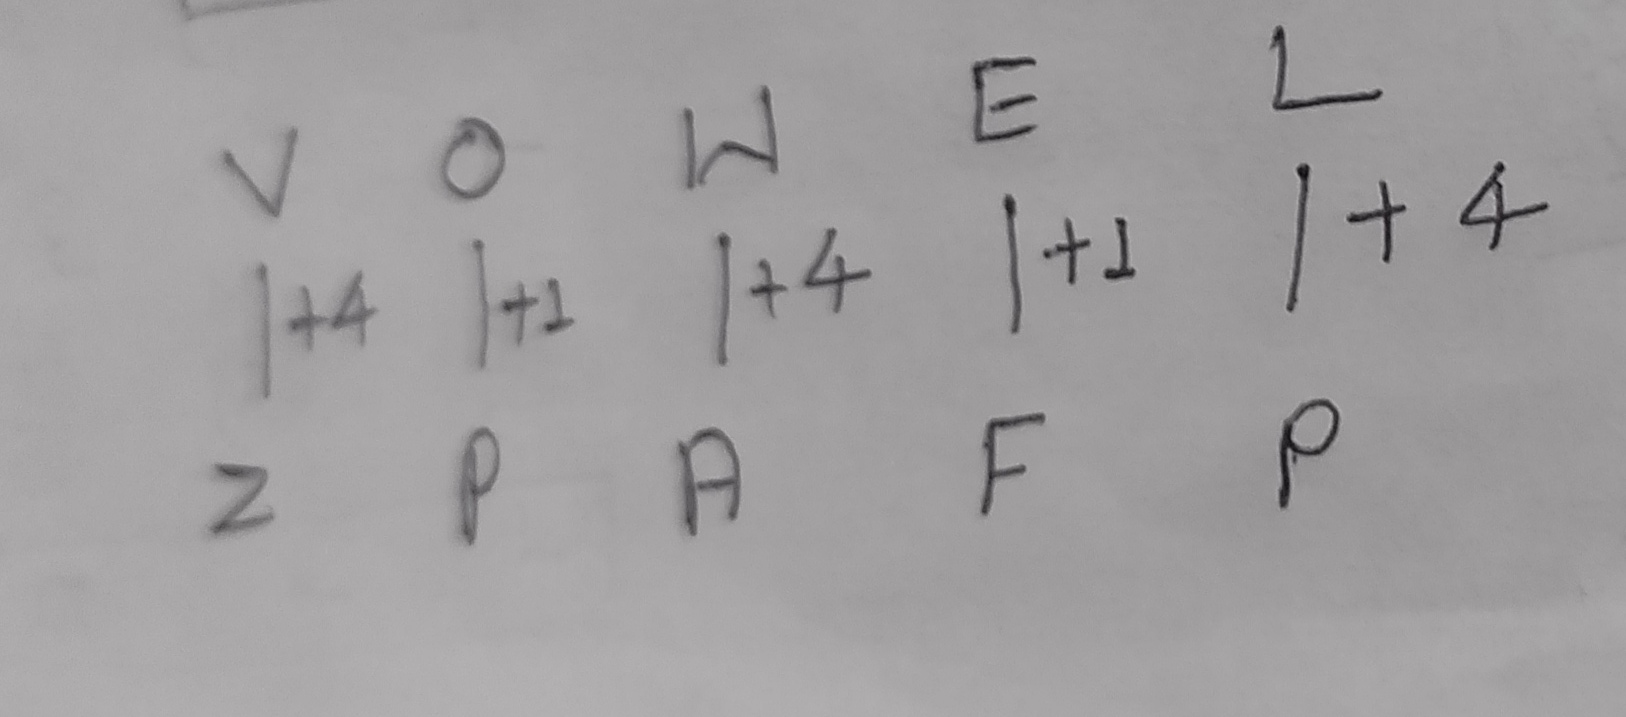 V O W E L
|+4 |+1 |+4 |+1 |+4
Z P A F P